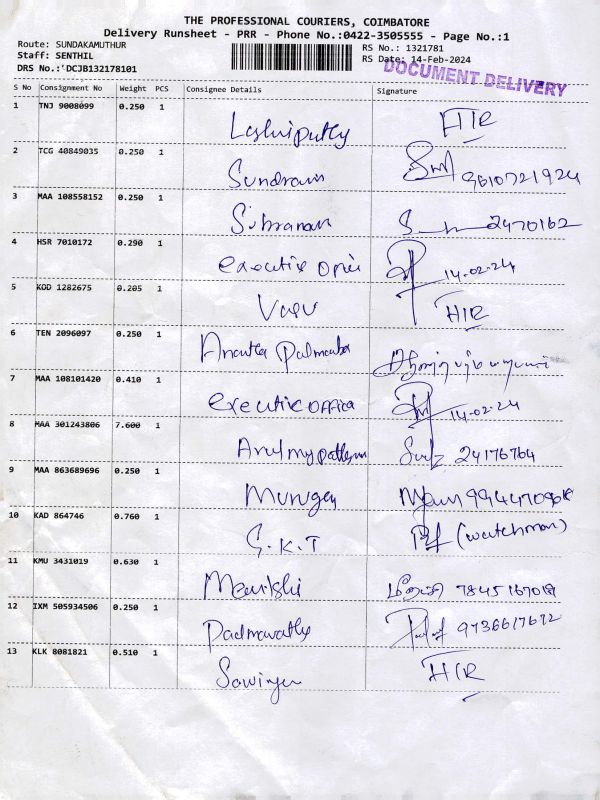 THE PROFESSIONAL COURIERS, COIMBATORE
Delivery Runsheet - PRR - Phone No.:0422-3505555 - Page No.:1
Route: SUNDAKAMUTHUR
RS No.: 1321781
Staff: SENTHIL
RS Date: 14-Feb-2024
DRS No.: DCJB132178101
DOCUMENT DELIVERY
S No Consignment No Weight PCS Consignee Details Signature
1 TNJ 9008099 0.250 1
HIR
2 TCG 40849035 0.250 1
Sundram 9610721924
3 MAA 108558152 0.250 1
2470162
4 HSR 7010172 0.290 1
executive 14-02-24
5 KOD 1282675 0.205 1
Vasu HIR
6 TEN 2096097 0.250 1
7 MAA 108101420 0.410 1
executive office 14-02-24
8 MAA 301243806 7.600 1
24176764
9 MAA 863689696 0.250 1
Murugan
10 KAD 864746 0.760 1
G.K.T (watchman)
11 KMU 3431019 0.630 1
12 IXM 505934506 0.250 1
Padmavathy
13 KLK 8081821 0.510 1
HIR